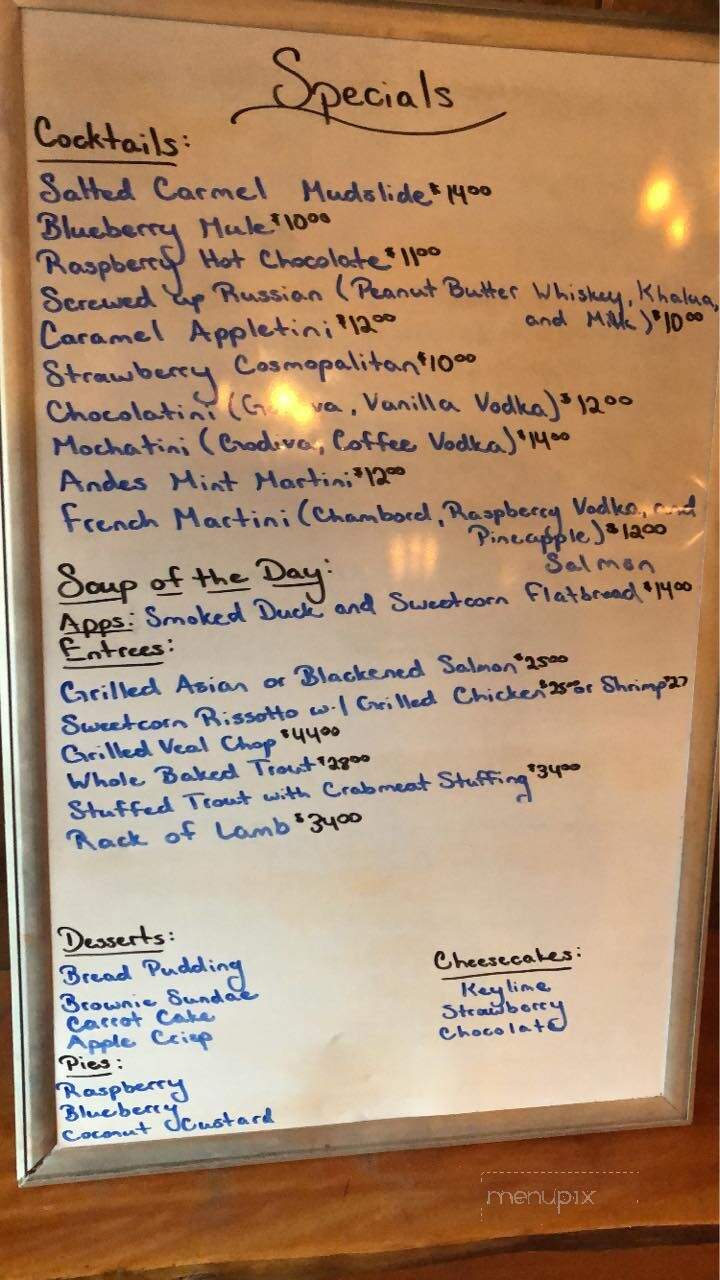 Specials
Cocktails:
Salted Carmel Mudslide $1400
Blueberry Mule $1000
Raspberry Hot Chocolate $1100
Screwed up Russian (Peanut Butter Whiskey, Khalua,
and Milk) $1000
Caramel Appletini $1200
Strawberry Cosmopalitan $1000
Chocolatini ( , Vanilla Vodka) $1200
Mochatini (Godiva, Coffee Vodka) $1400
Andes Mint Martini $1200
French Martini (Chambord, Raspberry Vodka, and
Pineapple) $1200
Soup of the Day:
Salmon
Apps: Smoked Duck and Sweetcorn Flatbread $1400
Entrees:
Grilled Asian or Blackened Salmon $2500
Sweetcorn Rissotto w/ Grilled Chicken $2500 or Shrimp $27
Grilled Veal Chop $4400
Whole Baked Trout $2800
Stuffed Trout with Crabmeat Stuffing $3400
Rack of Lamb $3400
Desserts:
Bread Pudding
Brownie Sundae
Carrot Cake
Apple Crisp
Pies:
Raspberry
Blueberry
Coconut Custard
Cheesecakes:
Keylime
Strawberry
Chocolate
menupix